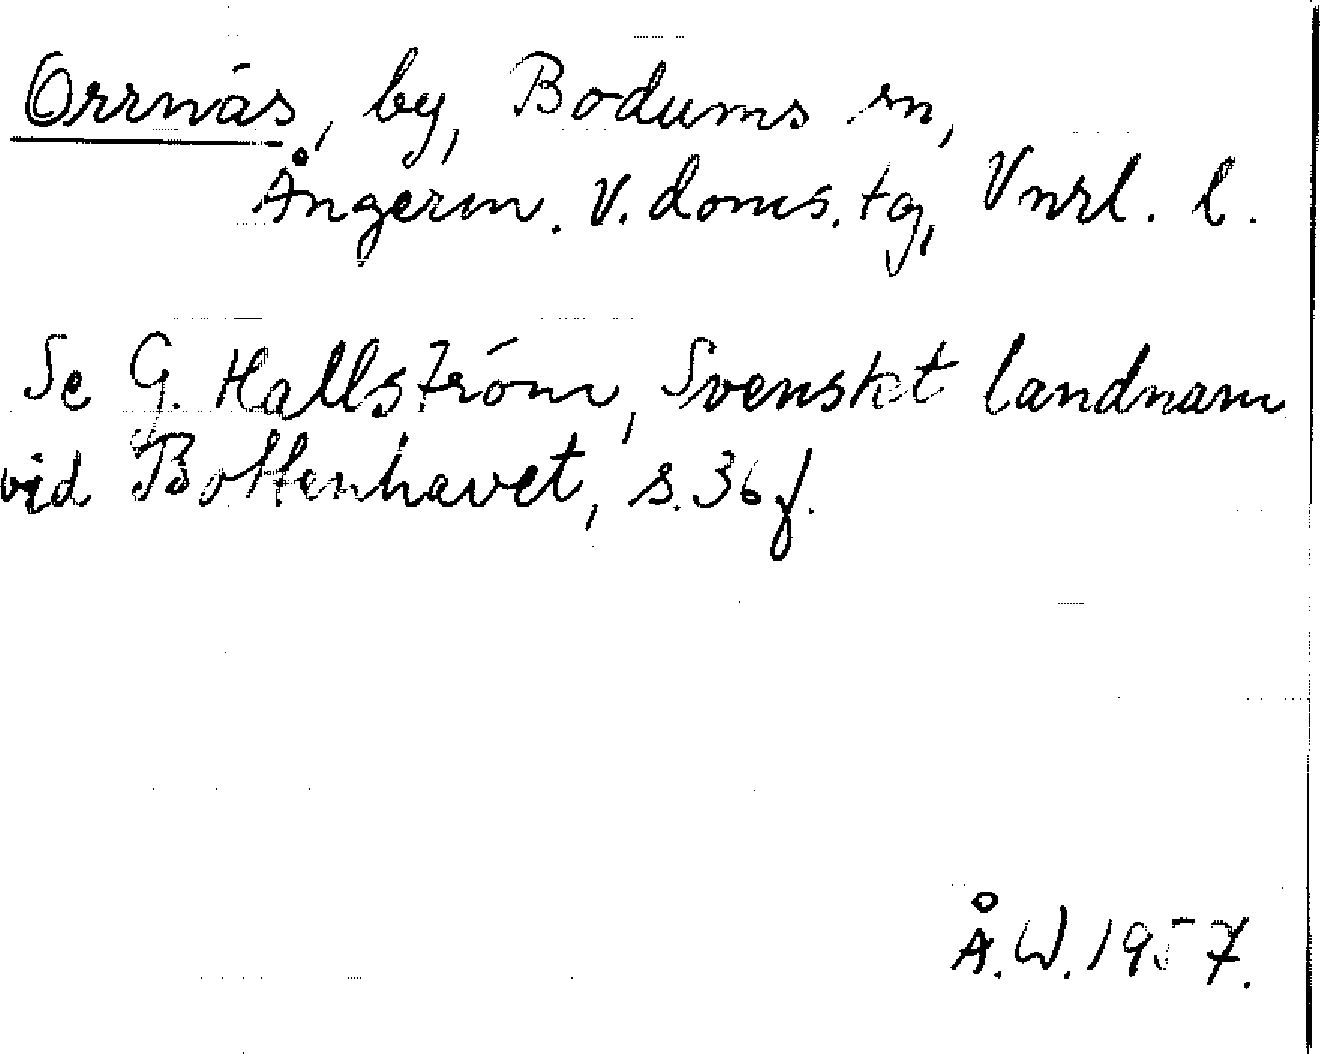 Orrnäs, by, Bodums sn,
Ångerm. v. doms. tg, Vnrl. l.
Se G. Hallström, Svenskt landnam
vid Bottenhavet, s. 36 f.
Å.W. 1957.